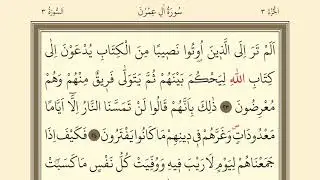 الجزء ٣ سورة آل عمران السورة ٣
أَلَمْ تَرَ إِلَى الَّذِينَ أُوتُوا نَصِيبًا مِنَ الْكِتَابِ يُدْعَوْنَ إِلَى
كِتَابِ اللَّهِ لِيَحْكُمَ بَيْنَهُمْ ثُمَّ يَتَوَلَّى فَرِيقٌ مِنْهُمْ وَهُمْ
مُعْرِضُونَ ٢٣ ذَلِكَ بِأَنَّهُمْ قَالُوا لَنْ تَمَسَّنَا النَّارُ إِلَّا أَيَّامًا
مَعْدُودَاتٍ وَغَرَّهُمْ فِي دِينِهِمْ مَا كَانُوا يَفْتَرُونَ ٢٤ فَكَيْفَ إِذَا
جَمَعْنَاهُمْ لِيَوْمٍ لَا رَيْبَ فِيهِ وَوُفِّيَتْ كُلُّ نَفْسٍ مَا كَسَبَتْ